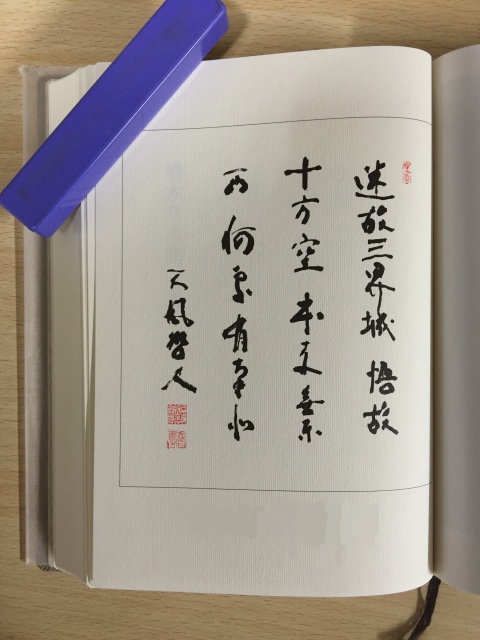 迷故三界城 悟故
十方空 本来無東
西 何処有南北
天風哲人